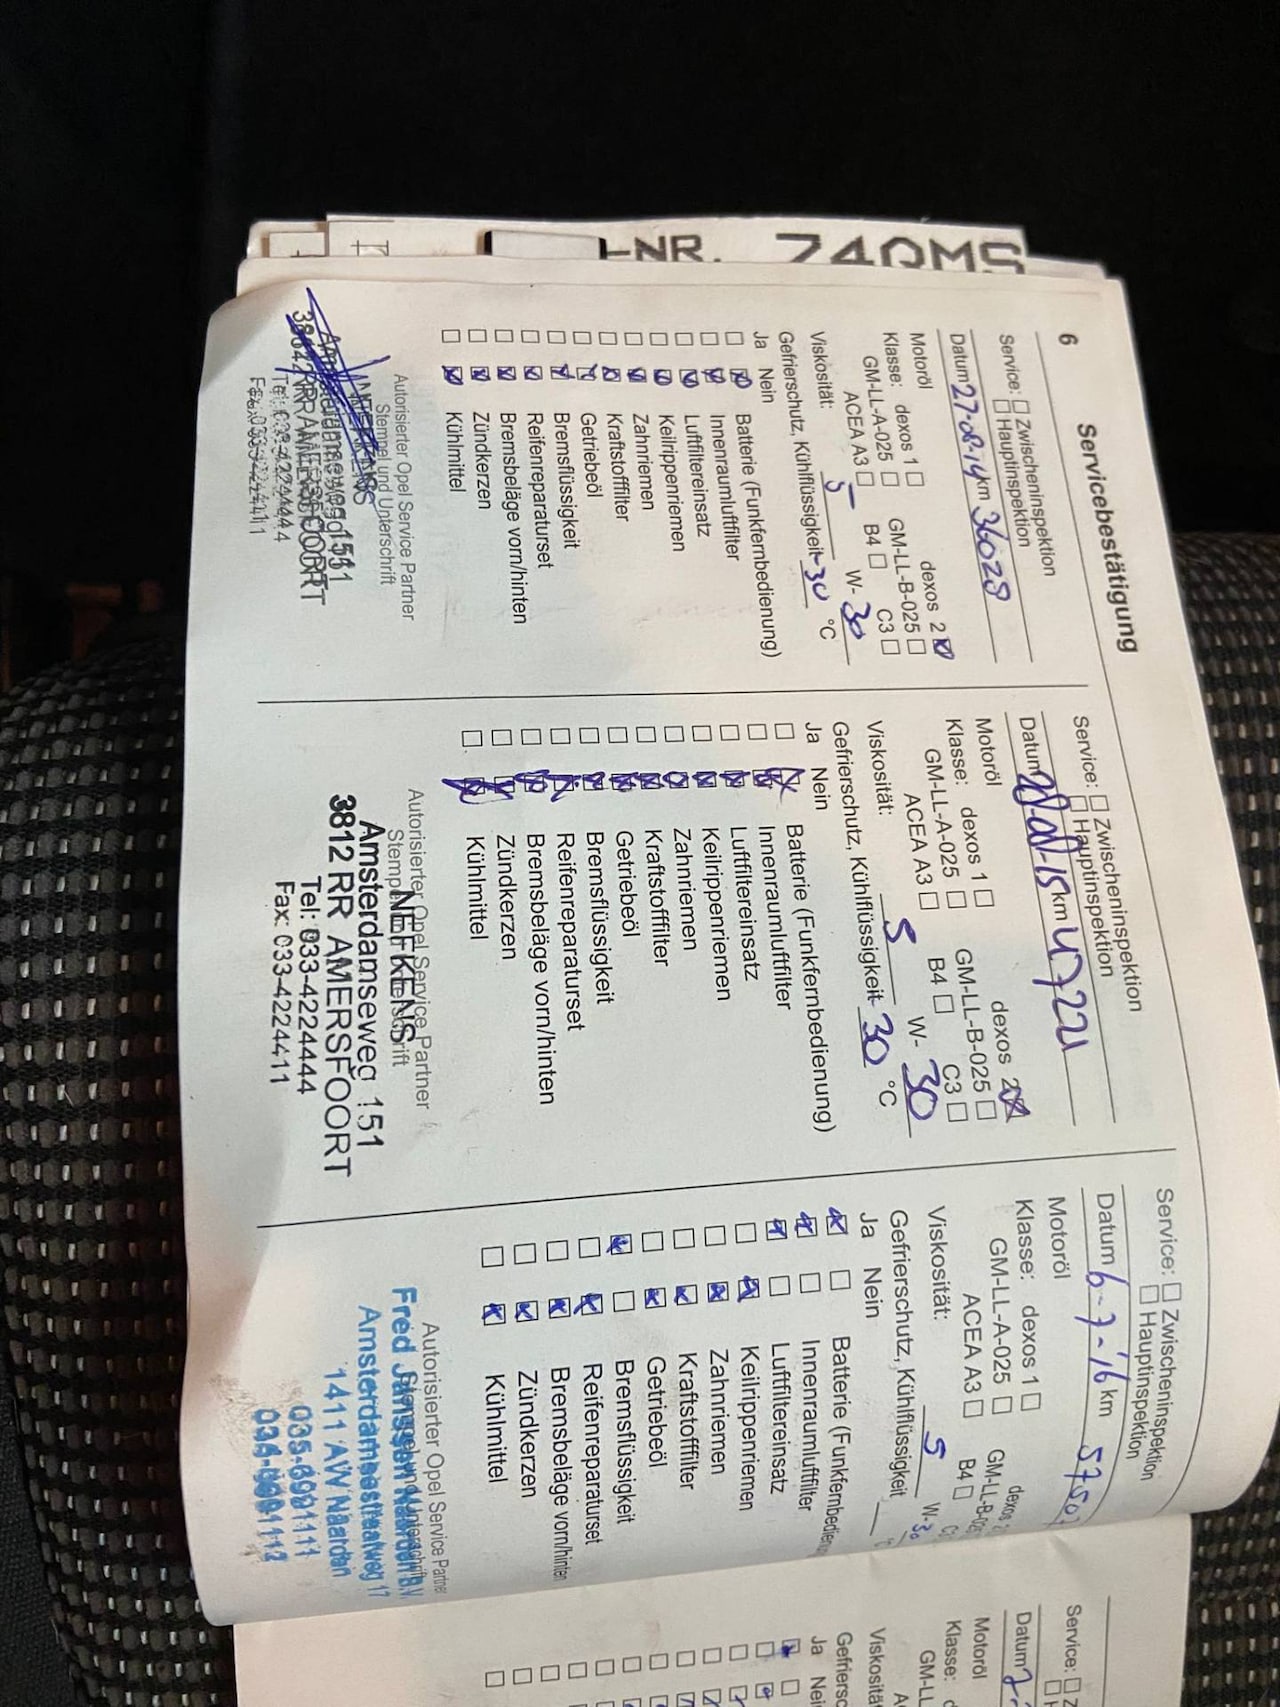 -NR. 74QMS
6
Servicebestätigung
Service: □ Zwischeninspektion
□ Hauptinspektion
Datum 27-08-14 km 36028
Motoröl
Klasse: dexos 1 □ dexos 2 ☒
GM-LL-A-025 □ GM-LL-B-025 □
ACEA A3 □ B4 □ C3 □
Viskosität: 5 W- 30
Gefrierschutz, Kühlflüssigkeit -30 °C
Ja Nein
□ ☒ Batterie (Funkfernbedienung)
□ ☒ Innenraumluftfilter
□ ☒ Luftfiltereinsatz
□ ☒ Keilrippenriemen
□ ☒ Zahnriemen
□ ☒ Kraftstofffilter
□ ☒ Getriebeöl
□ ☒ Bremsflüssigkeit
□ ☒ Reifenreparaturset
□ ☒ Bremsbeläge vorn/hinten
□ ☒ Zündkerzen
□ ☒ Kühlmittel
Autorisierter Opel Service Partner
Stempel und Unterschrift
Service: □ Zwischeninspektion
□ Hauptinspektion
Datum km
Motoröl
Klasse: dexos 1 □ dexos 2 ☒
GM-LL-A-025 □ GM-LL-B-025 □
ACEA A3 □ B4 □ C3 □
Viskosität: 5 W- 30
Gefrierschutz, Kühlflüssigkeit 30 °C
Ja Nein
□ ☒ Batterie (Funkfernbedienung)
□ ☒ Innenraumluftfilter
□ ☒ Luftfiltereinsatz
□ ☒ Keilrippenriemen
□ ☒ Zahnriemen
□ ☒ Kraftstofffilter
□ ☒ Getriebeöl
□ ☒ Bremsflüssigkeit
□ ☒ Reifenreparaturset
□ ☒ Bremsbeläge vorn/hinten
□ ☒ Zündkerzen
□ ☒ Kühlmittel
Autorisierter Opel Service Partner
NEFKENS
Amsterdamseweg 151
3812 RR AMERSFOORT
Tel: 033-4224444
Fax: 033-4224411
Service: □ Zwischeninspektion
□ Hauptinspektion
Datum 6-7-'16 km
Motoröl
Klasse: dexos 1 □ dexos
GM-LL-A-025 □ GM-LL-B-
ACEA A3 □ B4 □
Viskosität: 5 W-30
Gefrierschutz, Kühlflüssigkeit
Ja Nein
☒ □ Batterie (Funkfernbedien
☒ □ Innenraumluftfilter
☒ □ Luftfiltereinsatz
□ ☒ Keilrippenriemen
□ ☒ Zahnriemen
□ ☒ Kraftstofffilter
□ ☒ Getriebeöl
☒ □ Bremsflüssigkeit
□ ☒ Reifenreparaturset
□ ☒ Bremsbeläge vorn/hinten
□ ☒ Zündkerzen
□ ☒ Kühlmittel
Autorisierter Opel Service Partner
Fred Naarden B.V.
Amsterdamsestraatweg 17
1411 AW Naarden
Service: □
Datum
Motoröl
Klasse:
GM-LL
Viskosität
Gefriersc
Ja